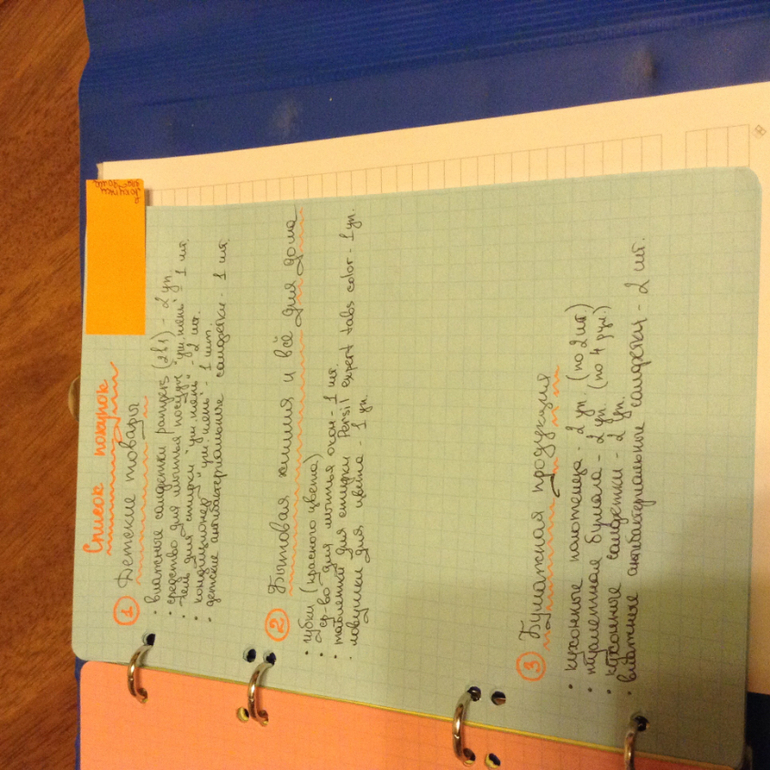 покупки
Список покупок
① Детские товары
• влажные салфетки pampers (2в1) - 2 уп.
• средство для мытья посуды "уш.нянь" - 1 шт.
• гель для стирки "уш.нянь" - 2 шт.
• кондиционер "уш.нянь" - 1 шт.
• детские антибактериальные салфетки - 1 шт.
② Бытовая химия и всё для дома
• губки (красного цвета)
• ср-во для мытья окон - 1 шт.
• таблетки для стирки Persil expert tabs color - 1 уп.
• ловушки для цвета - 1 уп.
③ Бумажная продукция
• кухонные полотенца - 2 уп. (по 2 шт)
• туалетная бумага - 2 уп. (по 4 рул.)
• кухонные салфетки - 2 уп.
• влажные антибактериальные салфетки - 2 шт.